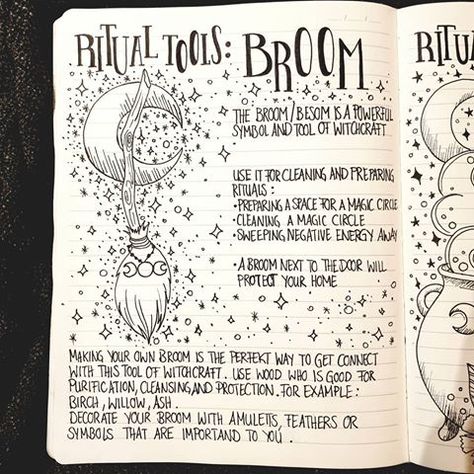 RITUAL TOOLS: BROOM
THE BROOM/BESOM IS A POWERFUL
SYMBOL AND TOOL OF WITCHCRAFT
USE IT FOR CLEANING AND PREPARING
RITUALS:
•PREPARING A SPACE FOR A MAGIC CIRCLE
•CLEANING A MAGIC CIRCLE
•SWEEPING NEGATIVE ENERGY AWAY
•A BROOM NEXT TO THE DOOR WILL
PROTECT YOUR HOME
MAKING YOUR OWN BROOM IS THE PERFEKT WAY TO GET CONNECT
WITH THIS TOOL OF WITCHCRAFT. USE WOOD WHO IS GOOD FOR
PURIFICATION, CLEANSING AND PROTECTION. FOR EXAMPLE:
BIRCH, WILLOW, ASH.
DECORATE YOUR BROOM WITH AMULETTS, FEATHERS OR
SYMBOLS THAT ARE IMPORTAND TO YOU.
RITUA